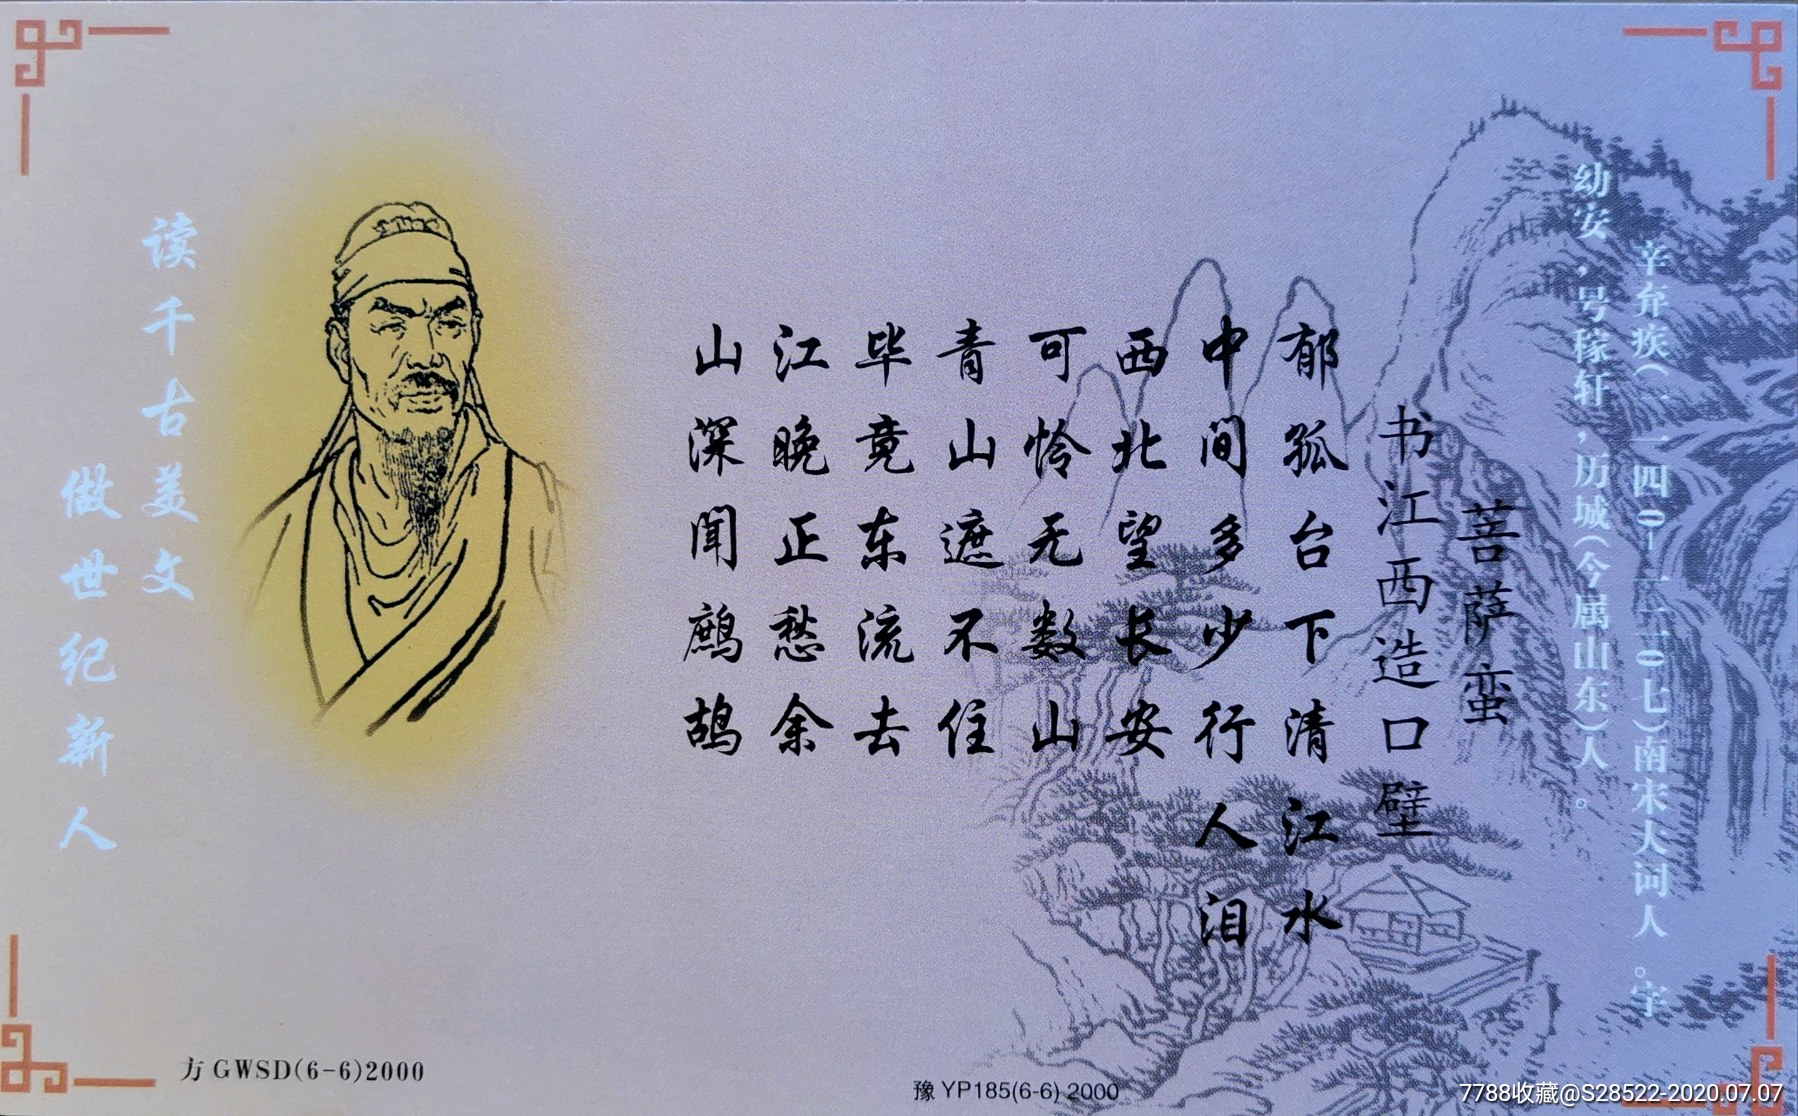 辛弃疾(一一四0-一二0七)南宋大词人。字
幼安，号稼轩，历城(今属山东)人。
菩萨蛮
书江西造口壁
郁孤台下清江水
中间多少行人泪
西北望长安
可怜无数山
青山遮不住
毕竟东流去
江晚正愁余
山深闻鹧鸪
读千古美文
做世纪新人
方 GWSD(6-6)2000
豫 YP185(6-6) 2000
7788收藏@S28522-2020.07.07